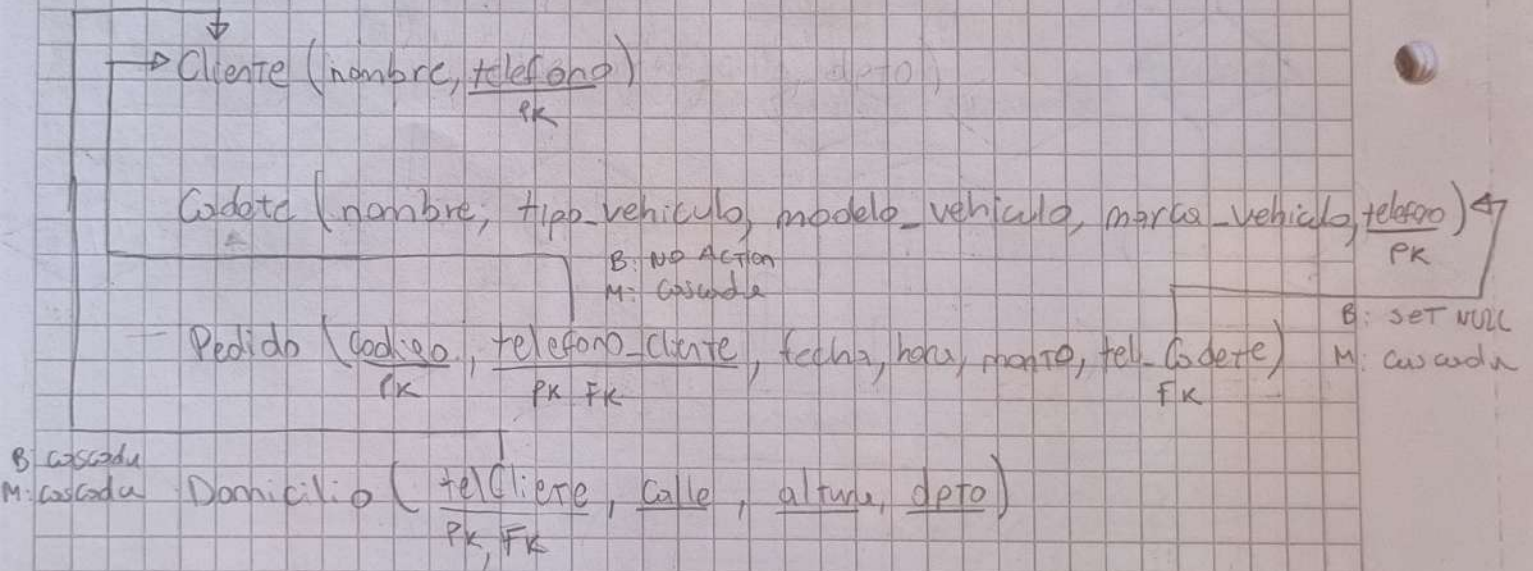 Cliente (nombre, telefono)
PK
Cadete (nombre, tipo_vehiculo, modelo_vehiculo, marca_vehiclo, telefono)
PK
B: NO ACTION
M: Cascada
Pedido (codigo, telefono_cliente, fecha, hora, monto, tel_Cadete)
PK
PK FK
FK
B: SET NULL
M: cascada
B cascada
M: cascada
Domicilio (telCliete, calle, altura, depto)
PK, FK